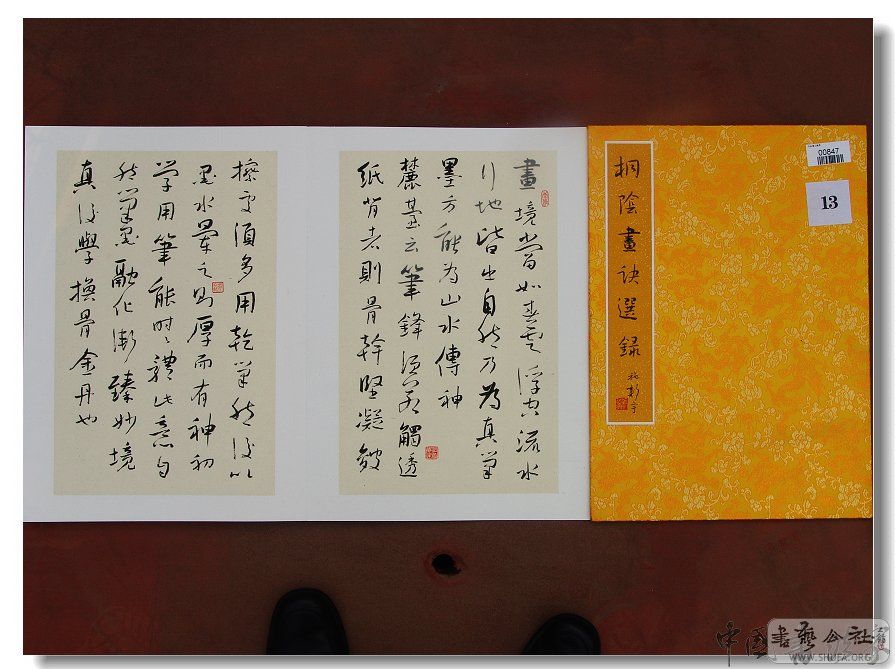 00847
13
桐陰畫訣選錄
畫境當如春雲浮空流水
行地皆出自然乃為真筆
墨方能為山水傳神
麓臺云筆鋒須要觸透
紙背者則骨幹堅凝皴
擦處須多用乾筆然後以
墨水暈之則厚而有神初
學用筆能時々體此意自
然筆墨融化漸臻妙境
真後學換骨金丹也
中国書藝公社
WWW.SHUFA.ORG